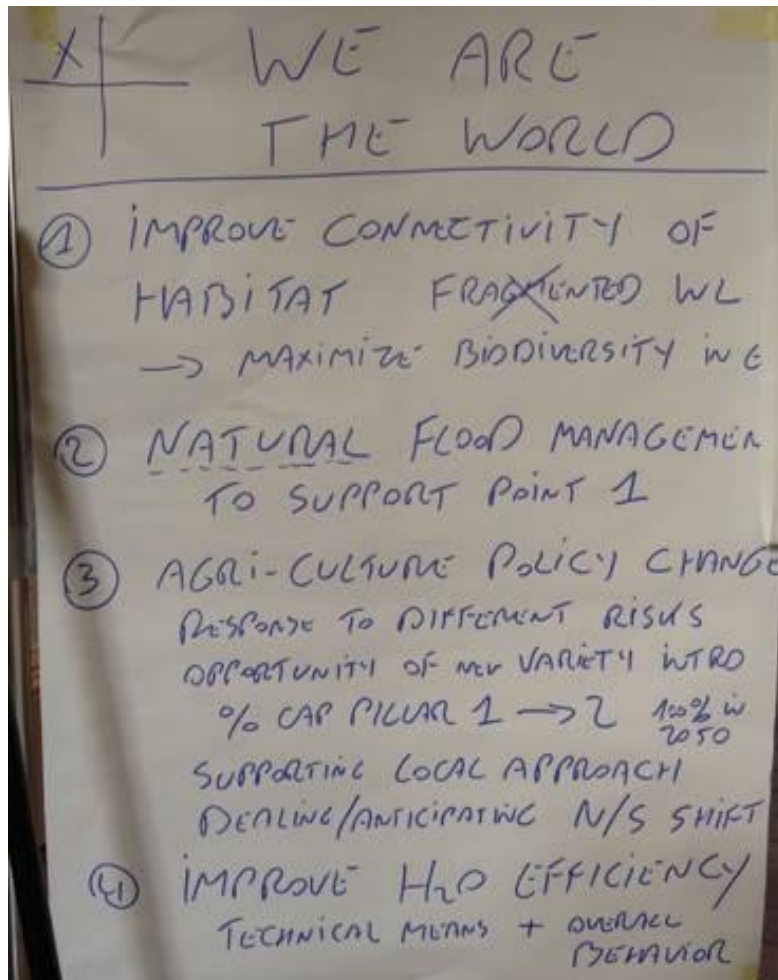 X WE ARE
THE WORLD
① IMPROVE CONNECTIVITY OF
HABITAT FRAGMENTED WL
→ MAXIMIZE BIODIVERSITY IN E
② NATURAL FLOOD MANAGEMEN
TO SUPPORT POINT 1
③ AGRI-CULTURE POLICY CHANGE
RESPONSE TO DIFFERENT RISKS
OPPORTUNITY OF NEW VARIETY INTRO
% CAP PILLAR 1 → 2 100% in
2050
SUPPORTING LOCAL APPROACH
DEALING/ANTICIPATING N/S SHIFT
④ IMPROVE H₂O EFFICIENCY
TECHNICAL MEANS + OVERALL
BEHAVIOR